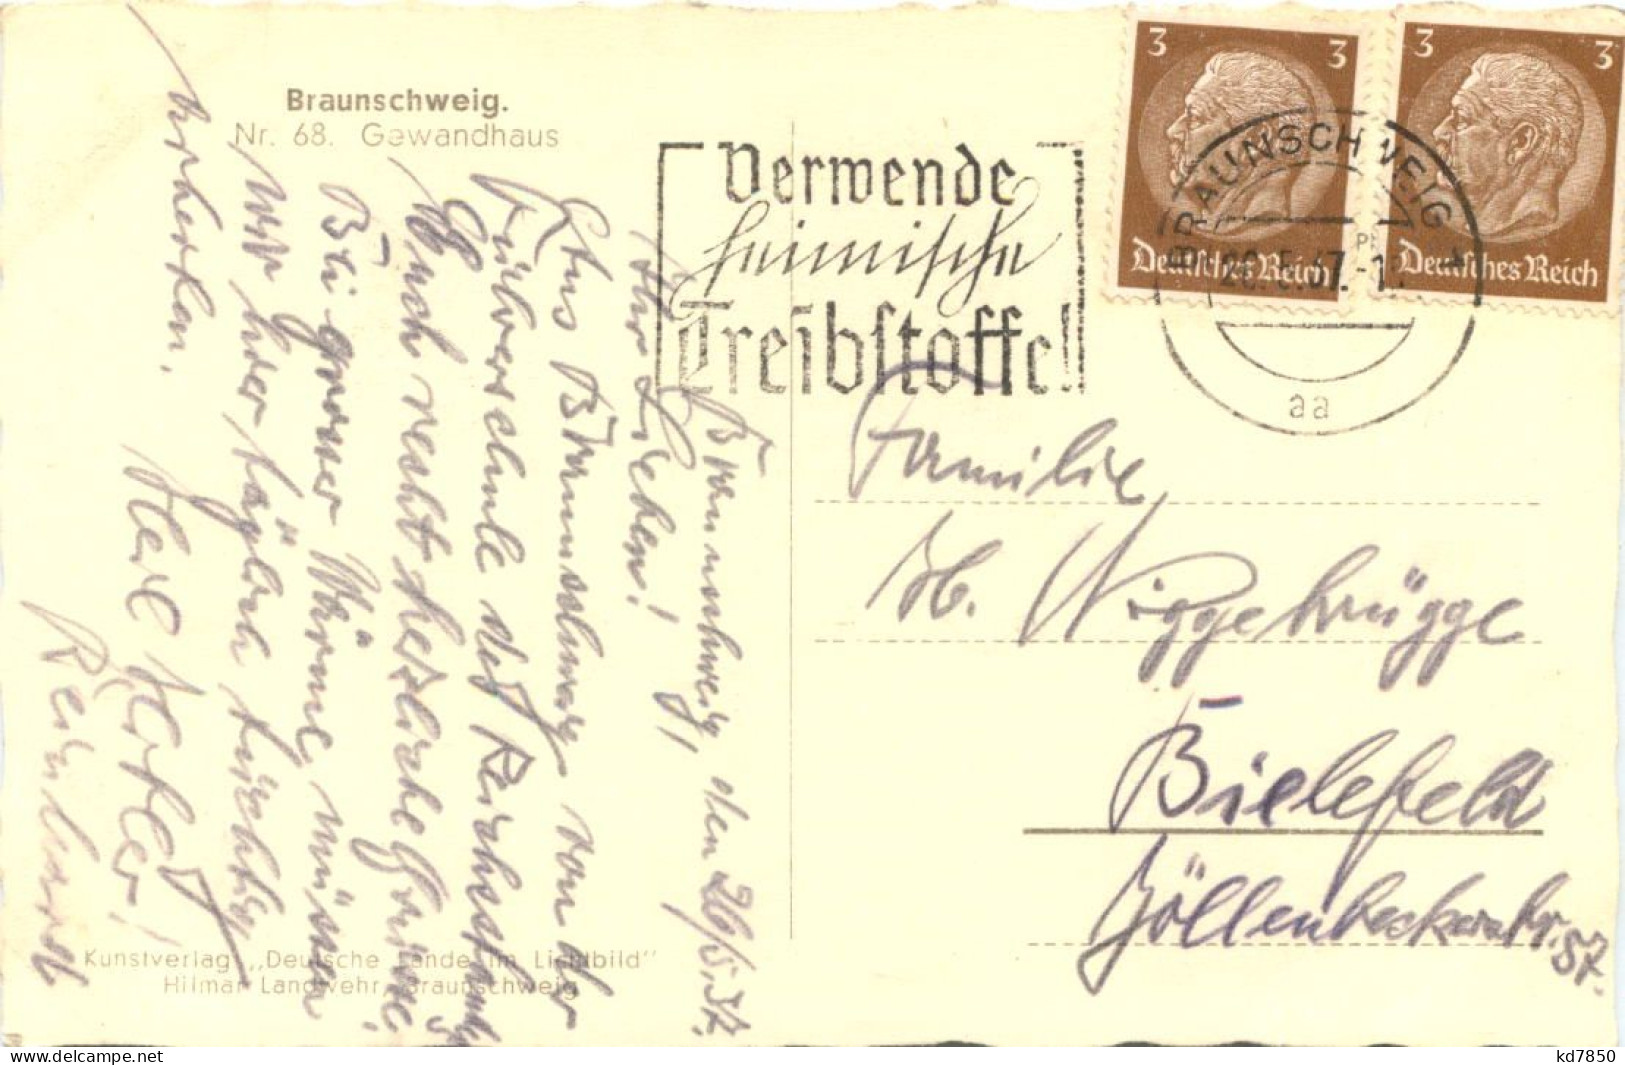 Braunschweig.
Nr. 68. Gewandhaus
Verwende
heimische
Treibstoffe!
3 3
Deutsches Reich
3 3
Deutsches Reich
BRAUNSCHWEIG
aa
Braunschweig, den 26/5.37.
Ihr Lieben!
Aus Braunschweig von der
Führerschule des Reichsstandes
Euch recht herzliche Grüße.
Bei grosser Wärme müssen
wir hier täglich tüchtig
arbeiten.
Heil Hitler!
Reinhardt
Familie
H. Niggebrügge
Bielefeld
Jöllenbeckerstr. 57.
Kunstverlag „Deutsche Lande im Lichtbild"
Hilmar Landwehr, Braunschweig
kd7850
www.delcampe.net